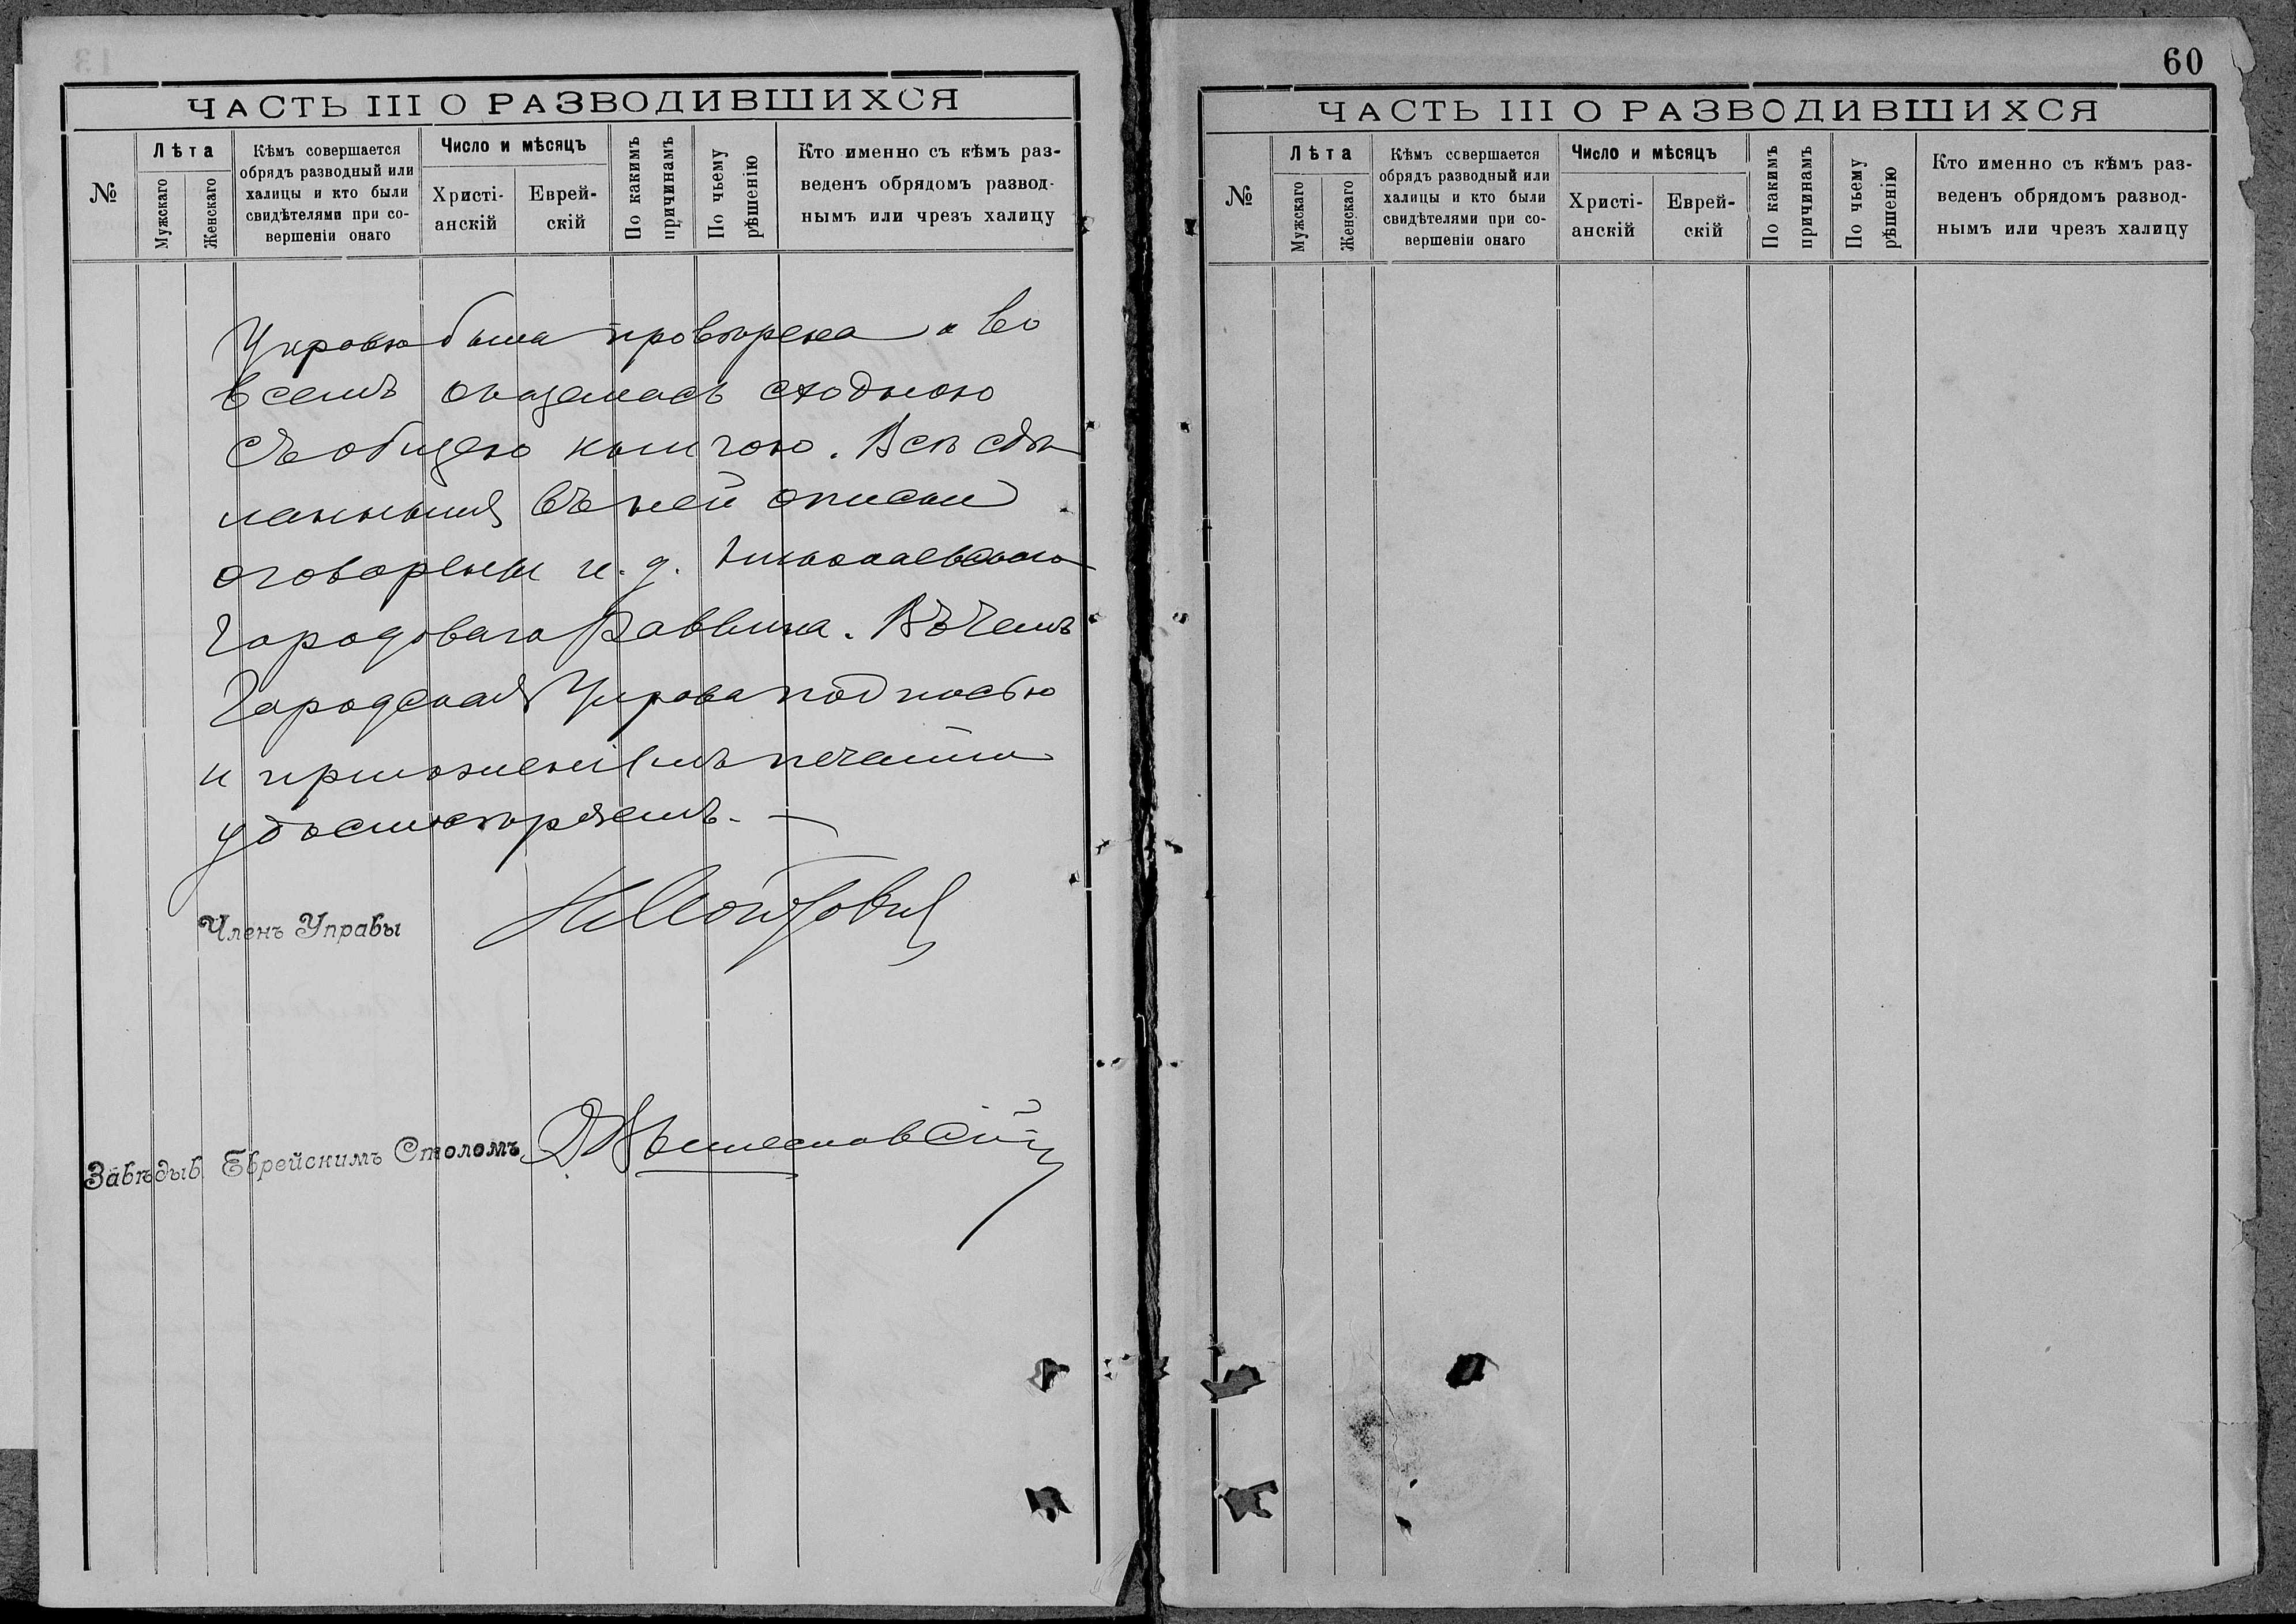 ЧАСТЬ III О РАЗВОДИВШИХСЯ
№
Лѣта
Мужскаго
Женскаго
Кѣмъ совершается
обрядъ разводный или
халицы и кто были
свидѣтелями при со-
вершеніи онаго
Число и мѣсяцъ
Христі-
анскій
Еврей-
скій
По какимъ
причинамъ
По чьему
рѣшенію
Кто именно съ кѣмъ раз-
веденъ обрядомъ развод-
нымъ или чрезъ халицу
Управою была провѣрена и во
всемъ оказалась сходною
съ общею книгою. Всѣ сдѣ
ланныя въ ней описки
оговорены и. д. Николаевскаго
Городоваго Раввина. Въ чемъ
Городская Управа подписью
и приложеніемъ печати
удостовѣряетъ. —
Членъ Управы
Завѣдыв. Еврейскимъ Столомъ
60
ЧАСТЬ III О РАЗВОДИВШИХСЯ
№
Лѣта
Мужскаго
Женскаго
Кѣмъ совершается
обрядъ разводный или
халицы и кто были
свидѣтелями при со-
вершеніи онаго
Число и мѣсяцъ
Христі-
анскій
Еврей-
скій
По какимъ
причинамъ
По чьему
рѣшенію
Кто именно съ кѣмъ раз-
веденъ обрядомъ развод-
нымъ или чрезъ халицу